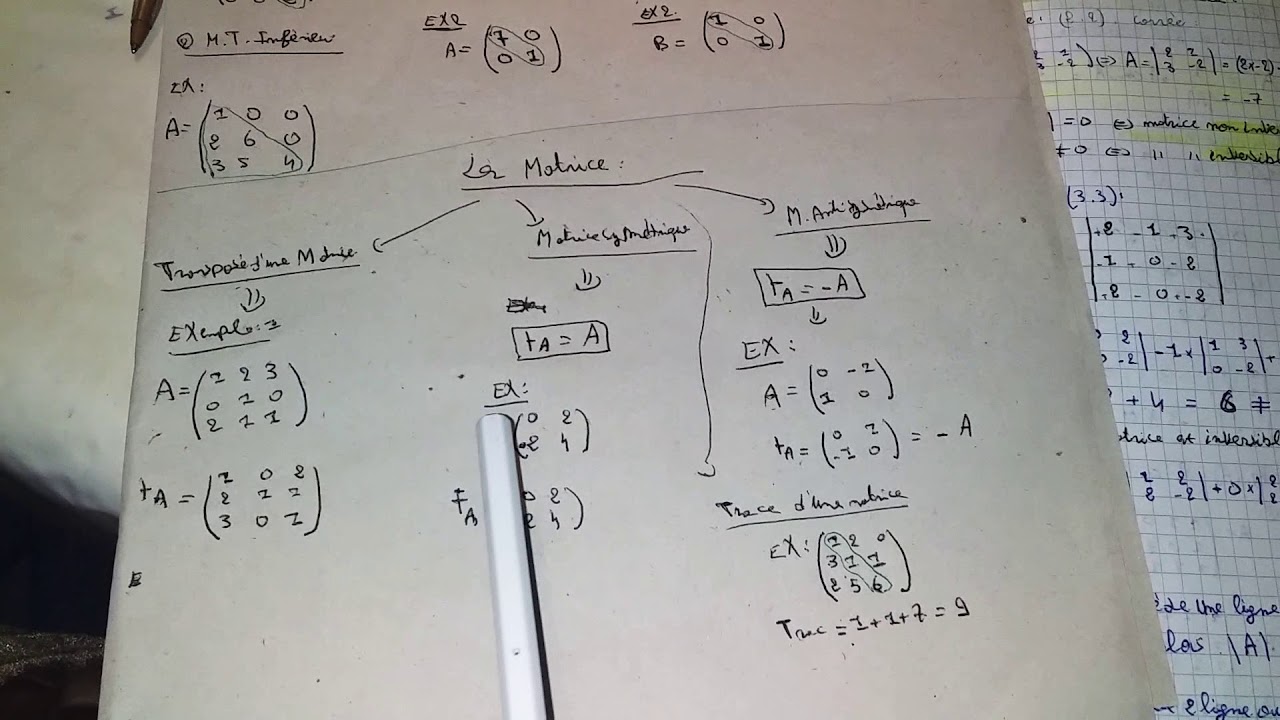 ② M.T. Inférieu
EX:
A = (1 0 0
2 6 0
3 5 4)
EX2
A = (7 0
0 1)
EX2.
B = (1 0
0 1)
La Matrice:
Transposé d'une Matrice
Exemple: 1
A = (1 2 3
0 1 0
2 1 1)
tA = (1 0 2
2 1 1
3 0 1)
Matrice symétrique
tA = A
EX:
(0 2
2 4)
tA
0 2
2 4)
M. Antisymétrique
tA = -A
EX:
A = (0 -1
1 0)
tA = (0 1
-1 0) = - A
Trace d'Une matrice
EX: (1 2 0
3 1 1
2 5 6)
Trac = 1 + 1 + 7 = 9
(2.2)
⇔ A = |2 2
3 -2| = (2x-2) -
= -7
= 0 ⇔ matrice non inver
≠ 0 ⇔ " " inversibl
(3.3):
|+2 - 1 + 3
-1 + 0 - 2
+2 - 0 + -2|
2
0 -2| - 1 x |1 3
0 -2| +
+ 4 = 6 ≠
trice est inversibl
2 2
2 -2| + 0 x |2
2
de Une ligne
|A|
2 ligne ou